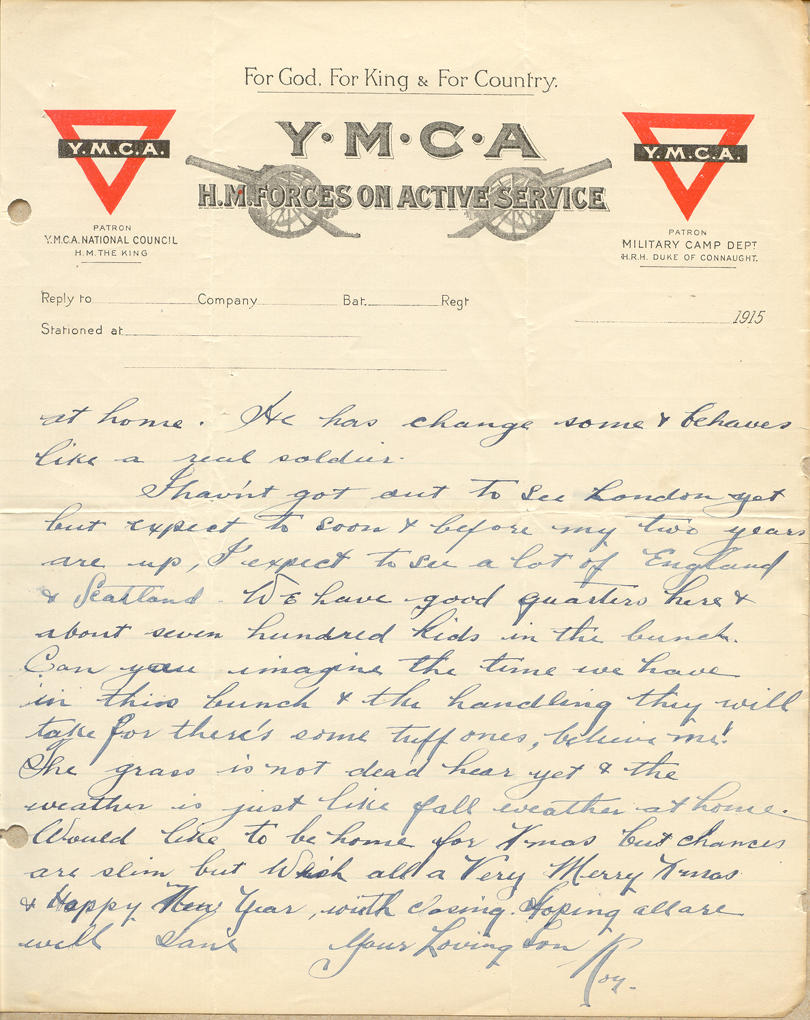 For God, For King & For Country.
Y·M·C·A
Y.M.C.A.
Y.M.C.A.
H.M. FORCES ON ACTIVE SERVICE
PATRON
Y.M.C.A. NATIONAL COUNCIL
H.M. THE KING
PATRON
MILITARY CAMP DEPT
H.R.H. DUKE OF CONNAUGHT.
Reply to Company Bat. Regt
1915
Stationed at
at home. He has change some & behaves
like a real soldier.
I hav'nt got out to see London yet
but expect to soon & before my two years
are up, I expect to see a lot of England
& Scotland. We have good quarters here &
about seven hundred kids in the bunch.
Can you imagine the time we have
in this bunch & the handling they will
take for there's some tuff ones, believe me!
The grass is not dead hear yet & the
weather is just like fall weather at home.
Would like to be home for Xmas but chances
are slim but Wish all a Very Merry Xmas
& Happy New Year, with closing. Hoping all are
well Your Loving Son
Roy.